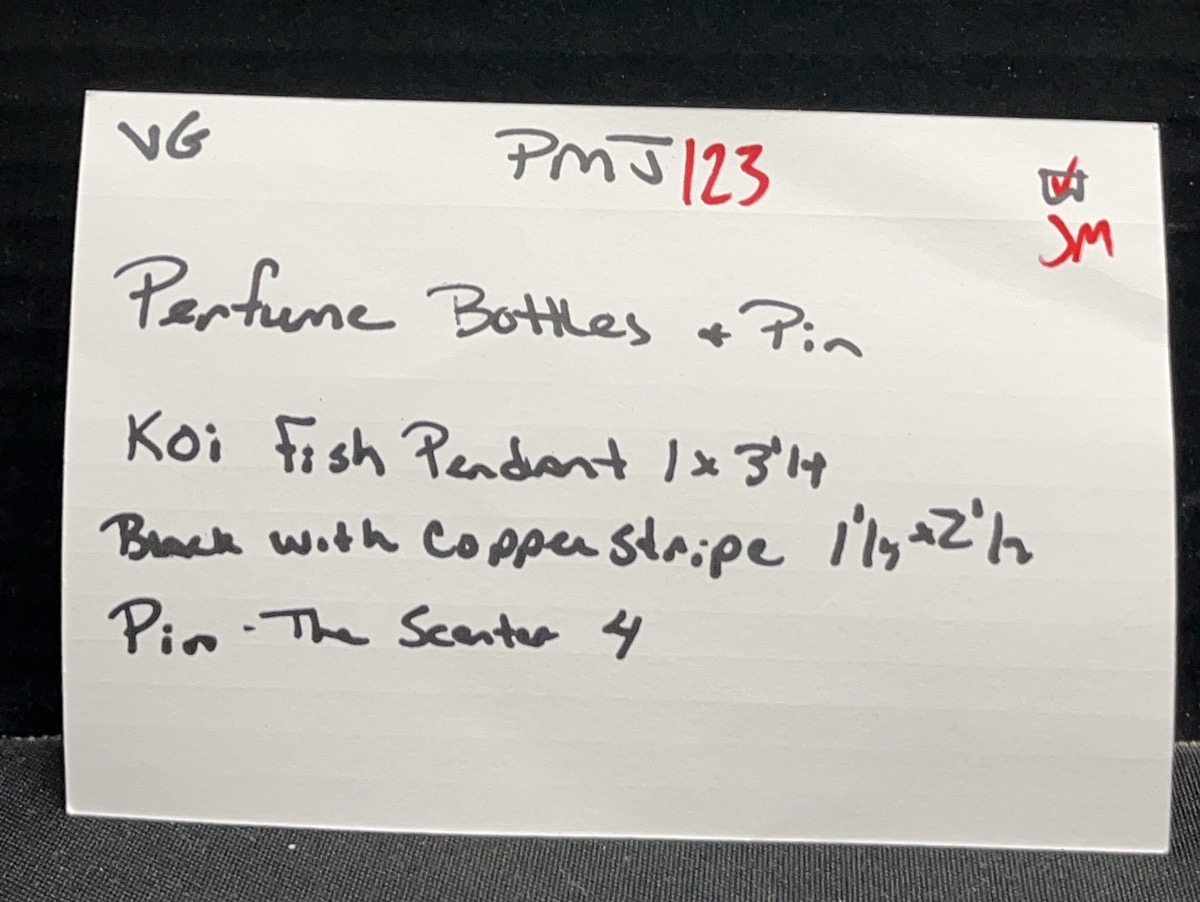 VG PMJ123
JM
Perfume Bottles + Pin
Koi Fish Pendant 1 x 3'/4
Black with Copper stripe x 2'/2
Pin - The Scenter 4